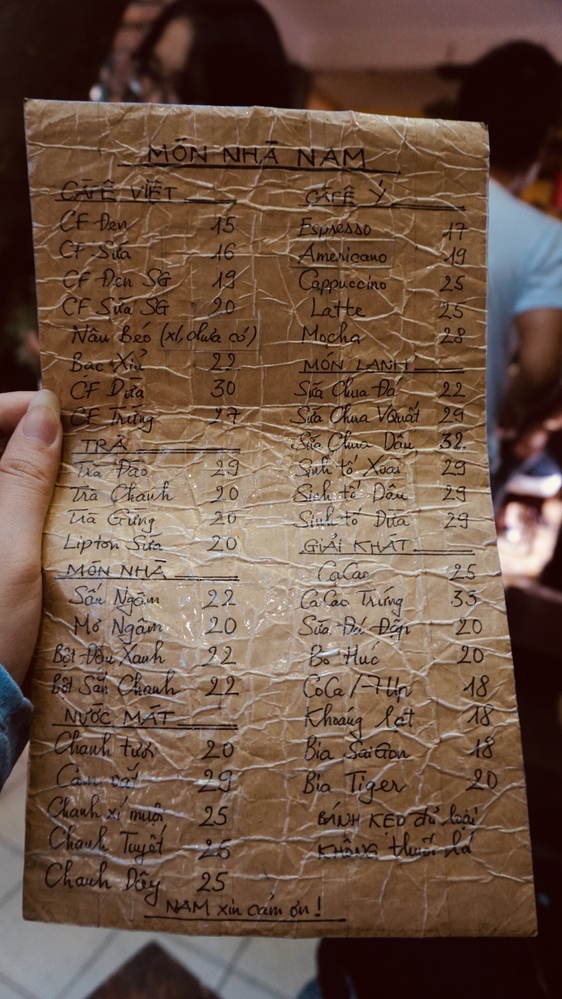 MÓN NHÀ NAM
CÀFÊ VIỆT
CF Đen 15
CF Sữa 16
CF Đen SG 19
CF Sữa SG 20
Nâu Béo (xl, chưa có)
Bạc Xỉu 22
CF Dừa 30
CF Trứng 27
TRÀ
Trà Đào 29
Trà Chanh 20
Trà Gừng 20
Lipton Sữa 20
MÓN NHÀ
Sấu Ngâm 22
Mơ Ngâm 20
Bột Đậu Xanh 22
Bột Sắn Chanh 22
NƯỚC MÁT
Chanh tươi 20
Cam vắt 29
Chanh xí muội 25
Chanh Tuyết 25
Chanh Dây 25
CÀFÊ Ý
Espresso 17
Americano 19
Cappuccino 25
Latte 25
Mocha 28
MÓN LẠNH
Sữa Chua Đá 22
Sữa Chua VQuất 29
Sữa Chua Dâu 32
Sinh tố Xoài 29
Sinh tố Dâu 29
Sinh tố Dừa 29
GIẢI KHÁT
CaCao 25
CaCao Trứng 33
Sữa Đá Đập 20
Bò Húc 20
CoCa / 7Up 18
Khoáng lạt 18
Bia SàiGòn 18
Bia Tiger 20
BÁNH KẸO đủ loại
KHÔNG thuốc lá
NAM xin cảm ơn!